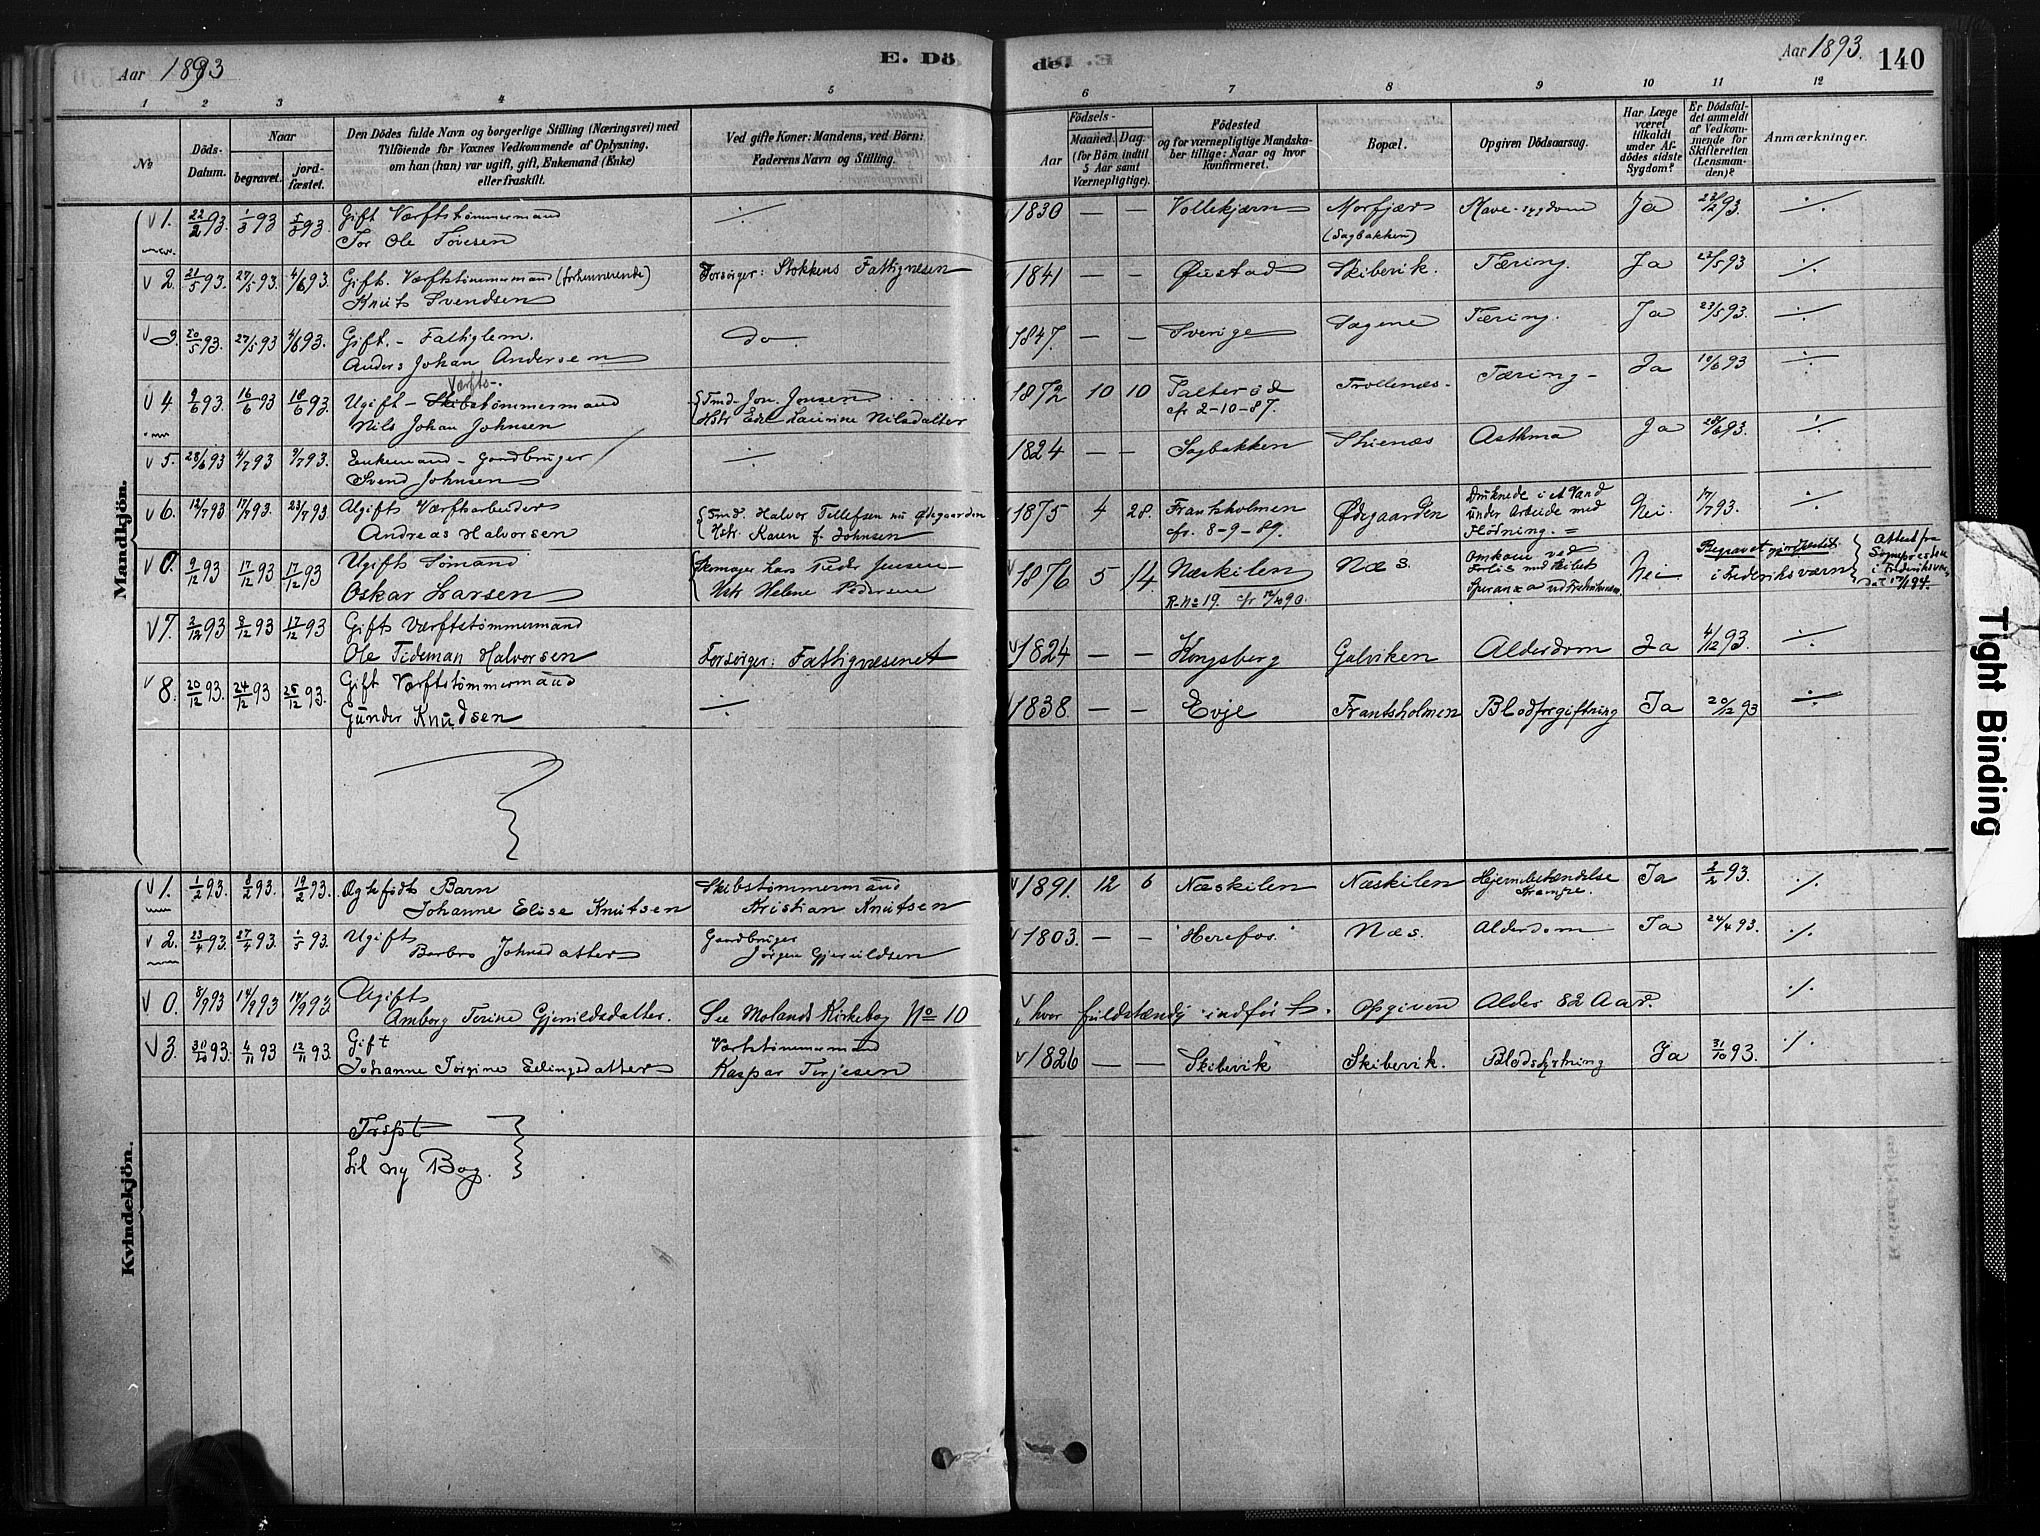 Aar 1893
E. Dö
de.
Aar 1893.
140
1 2 3 4 5 6 7 8 9 10 11 12
No
Döds-Datum.
Naar
begravet.
jord-fæstet.
Den Dödes fulde Navn og borgerlige Stilling (Næringsvei) med
Tilföiende for Voxnes Vedkommende af Oplysning.
om han (hun) var ugift, gift, Enkemand (Enke)
eller fraskilt.
Ved gifte Koner: Mandens, ved Börn:
Faderens Navn og Stilling.
Födsels-
Aar
Maaned. Dag.
(for Börn indtil
5 Aar samt
Værnepligtige).
Födested
og for værnepligtige Mandska-
ber tillige: Naar og hvor
konfirmeret.
Bopæl.
Opgiven Dödsaarsag.
Har Læge
været
tilkaldt
under Af-
dödes sidste
Sygdom?
Er Dödsfal-
det anmeldt
af Vedkom-
mende for
Skifteretten
(Lensman-
den)?
Anmærkninger.
Mandkjön.
1. 22/2 93. 1/3 93 5/3 93. Gift Værftstømmermand ÷ 1830 — — Vollekjærn Morfjær Mave-sygdom Ja 23/2 93. ÷
Tor Ole Tovesen (Sagbakken)
2. 21/5 93. 27/5 93. 4/6 93. Gift. Værftstømmermand (forhenværende) Forsørger: Stokkens Fattigvæsen 1841 — — Øustad Skibevik. Tæring. Ja 22/5 93 ÷
Knut Svendsen
3. 20/5 93. 27/5 93 4/6 93. Gift. - Fattiglem. do 1847. — — Sverige Sagene Tæring. Ja 23/5 93. ÷
Anders Johan Andersen
4. 9/6 93. 16/6 93 18/6 93. Ugift - Værfts- Skibstømmermand Tmd. Jon. Jonsen 1872 10 10 Falterød Trollenæs- Tæring - Ja 10/6 93 ÷
Nils Johan Johnsen Hstr Laurine Nilsdatter cfr 2-10-87.
5. 28/6 93 4/7 93 9/7 93. Enkemand - Gaardbruger ÷ 1824 — — Sagbakken Asthma Ja 29/6 93. ÷
Svend Johnsen
6. 12/7 93. 17/7 93. 23/7 93. Ugift Værftsarbeider Tmd. Halvor Tellefsen nu Ødegaarden 1875 4 28. Frantsholmen Ødegaarden Druknede i et Vand Nei. 17/7 93. ÷
Andreas Halvorsen Hstr. Karen f. Johnsen cfr. 8-9-89. under Arbeide med
Flødning.
0. 9/12 93 17/12 93 17/12 93 Ugift Sømand Skomager Lars Peder Jensen 1876 5 14. Næskilen Næs. Omkom ved Nei Begravet Attest fra
Oskar Larsen Hstr Helene Pedersen R. No 19. cfr 90. Forlis med Skibet i Frederiksværn Sognepresten
Speranza i Frederiksværn
17/1 94.
7. 2/12 93 8/12 93 17/12 93 Gift Værftstømmermand 1824 — — Kongsberg Galviken Alderdom Ja 4/12 93. ÷
Ole Tideman Halvorsen Forsørger: Fattigvæsenet
8. 20/12 93. 24/12 93 25/12 93. Gift Værftstømmermand ÷ 1838 — — Evje Frantsholmen Blodforgiftning Ja 20/12 93 ÷
Gunder Knudsen
Kvindekjön.
1. 1/2 93. 8/2 93. 19/2 93. Ægtefødt Barn Skibstømmermand 1891. 12 6 Næskilen Næskilen Hjernebetændelse Ja 2/2 93. ÷
Johanne Elise Knutsen Kristian Knutsen Krampe.
2. 23/4 93. 27/4 93. 1/5 93. Ugift Gaardbruger 1803. — — Herefos. Næs. Alderdom Ja 24/4 93. ÷
Barbro Johnsdatter Jørgen Gjeruldsen
0. 8/9 93 14/9 93 14/9 93. Ugift ÷
Amborg Terine Gjeruldsdatter. See Molands Kirkebog No 10 hvor fuldstændig indført. Opgiven Alder 82 Aar.
3. 31/10 93. 4/11 93 12/11 93. Gift Værftstømmermand 1826 — — Skibevik Skibevik. Blodstyrtning Ja 31/10 93. ÷
Johanne Jørgine Ellingsdatter Kaspar Terjesen
til ny Bog.
Tight Binding